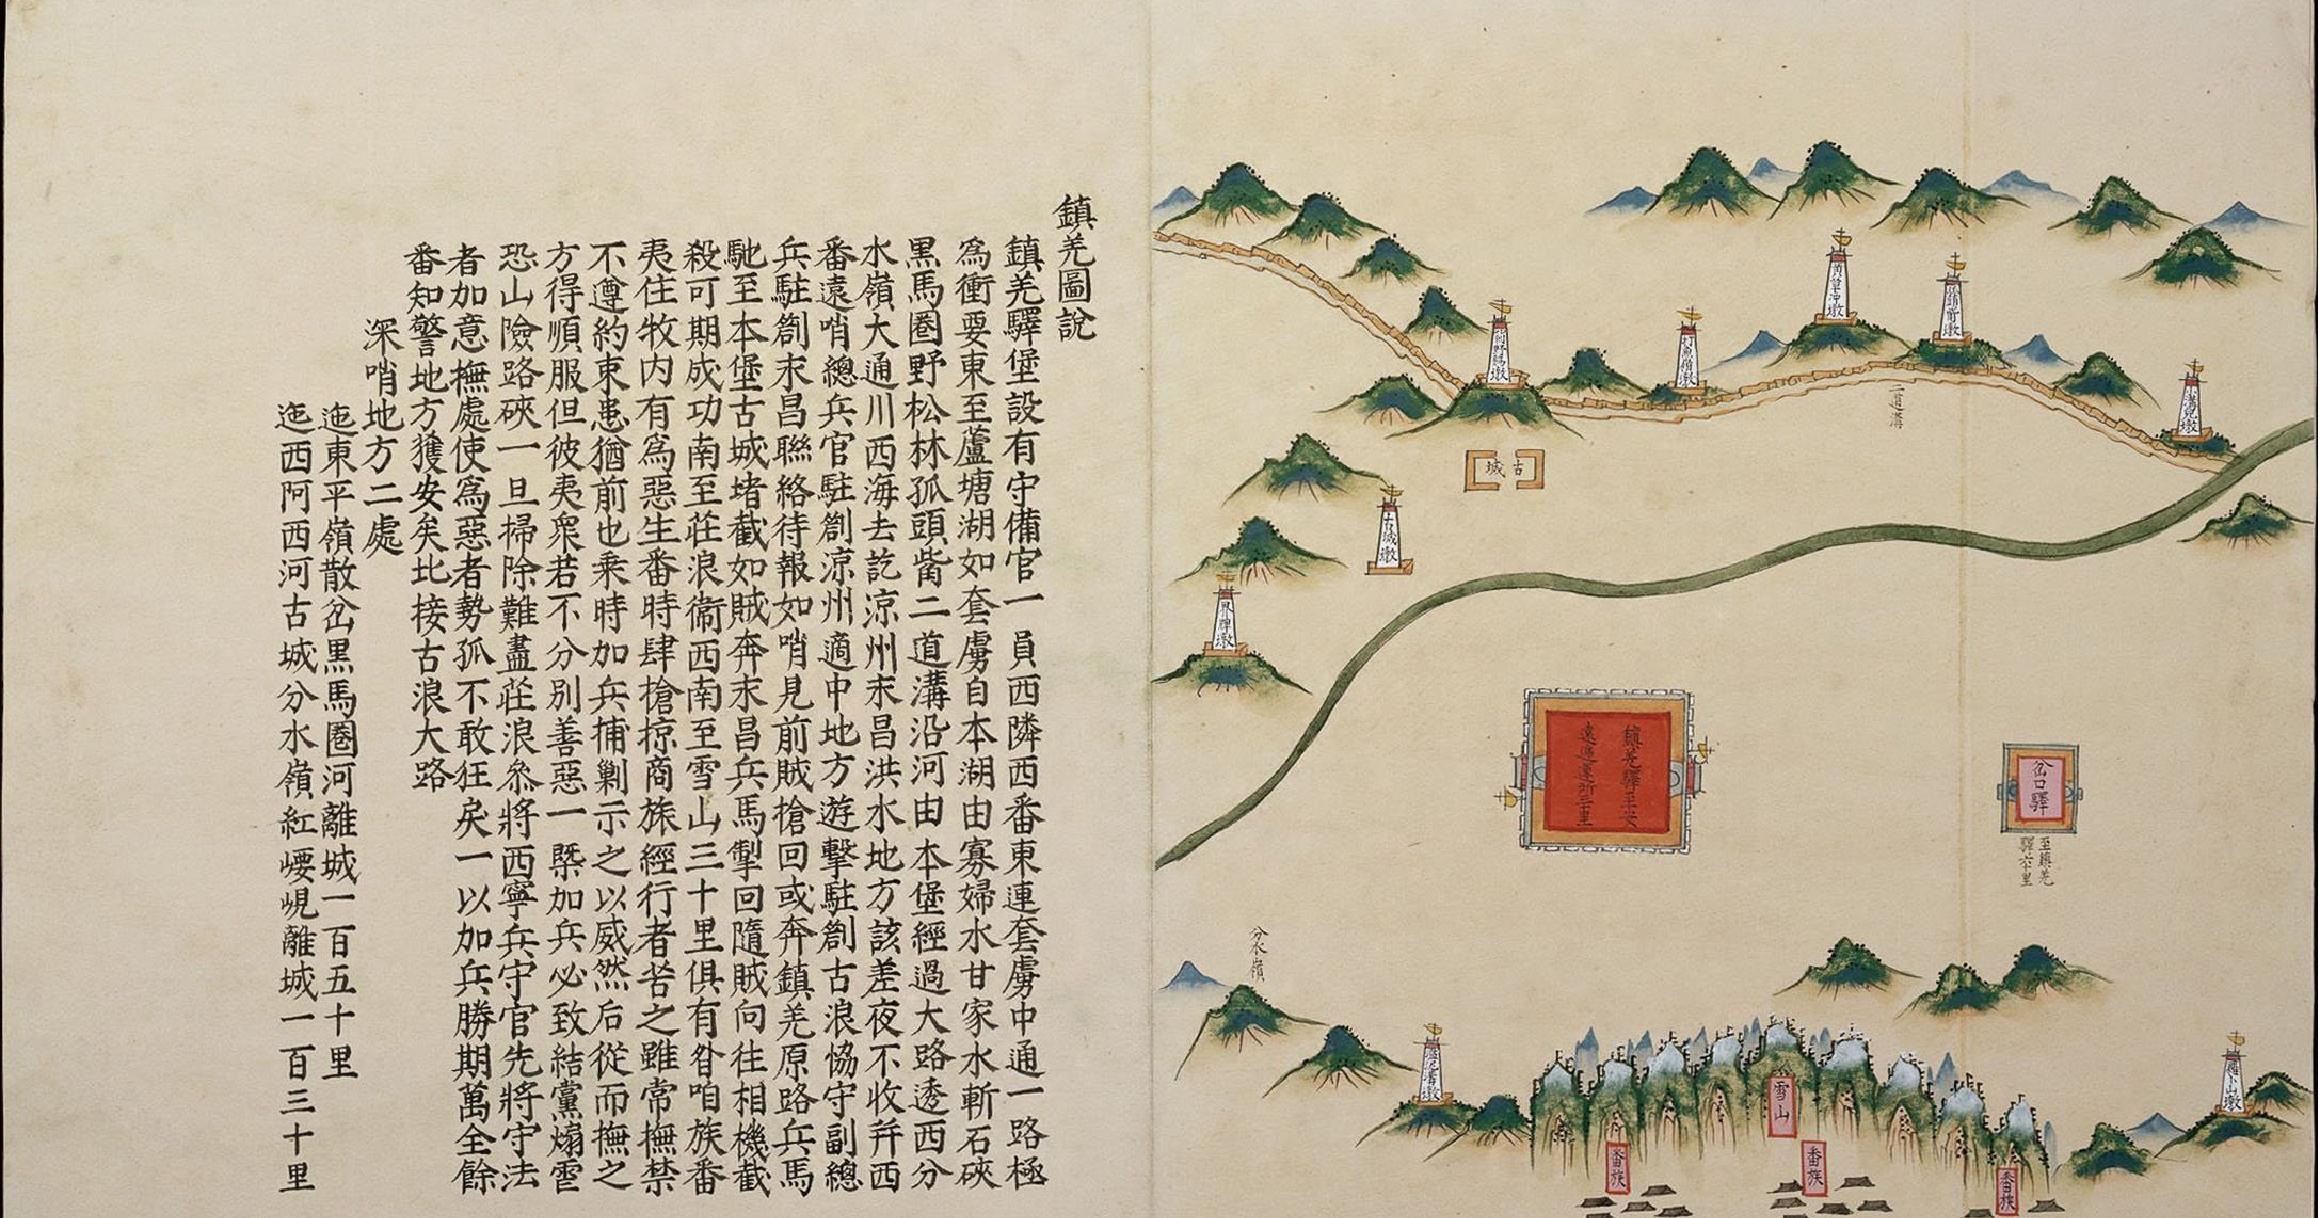 鎮羌圖說
鎮羌驛堡設有守備官一員西隣西番東連套虜中通一路極
爲衝要東至蘆塘湖如套虜自本湖由寡婦水甘家水斬石硤
黑馬圈野松林孤頭嘴二道溝沿河由本堡經過大路透西分
水嶺大通川西海去訖涼州永昌洪水地方該差夜不收幷西
番遠哨總兵官駐劄涼州適中地方遊擊駐劄古浪協守副總
兵駐劄永昌聯絡待報如哨見前賊搶回或奔鎮羌原路兵馬
馳至本堡古城堵截如賊奔永昌兵馬掣回隨賊向往相機截
殺可期成功南至莊浪衞西南至雪山三十里俱有昝咱族番
夷住牧內有爲惡生番時肆搶掠商旅經行者苦之雖常撫禁
不遵約束患猶前也乘時加兵捕剿示之以威然后從而撫之
方得順服但彼夷衆若不分別善惡一槩加兵必致結黨煽
恐山險路硤一旦掃除難盡莊浪叅將西寧兵守官先將守法
者加意撫處使爲惡者勢孤不敢狂戾一以加兵勝期萬全餘
番知警地方獲安矣北接古浪大路
深哨地方二處
迤東平嶺散岔黑馬圈河離城一百五十里
迤西阿西河古城分水嶺紅崾峴離城一百三十里
二道溝
古城
古城墩
界牌墩
鎮羌驛至安
遠遞運所三十里
岔口驛
至鎮羌
驛六十里
分水嶺
雪山
番族
番族
番族